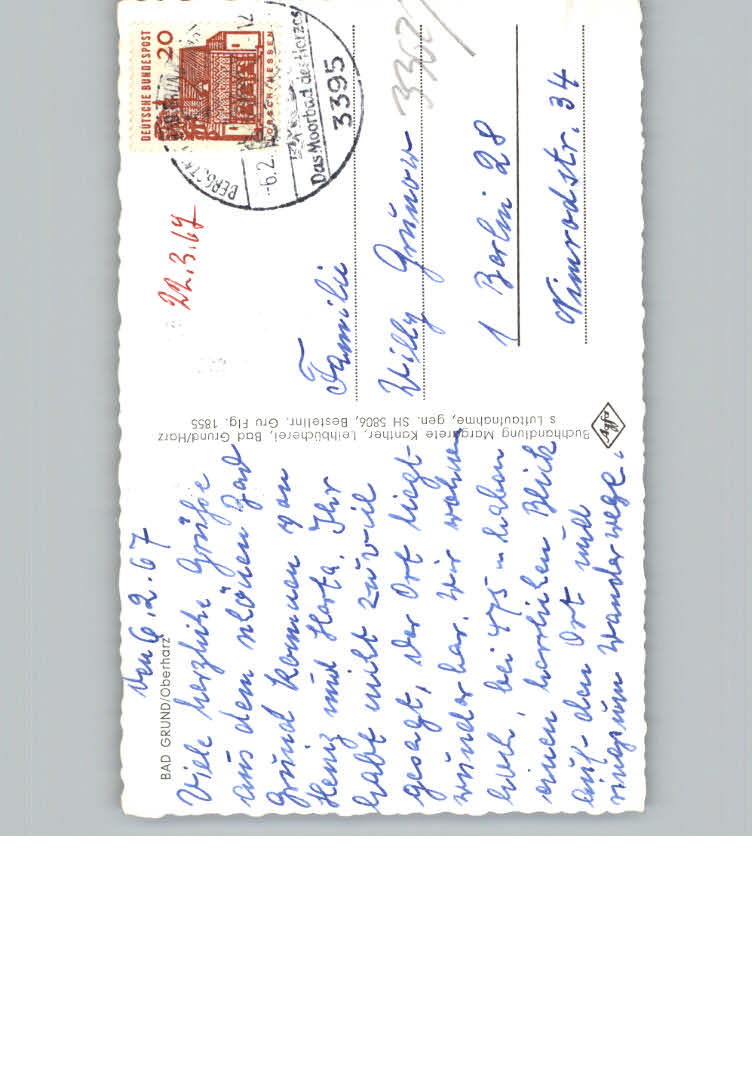 BAD GRUND/Oberharz
den 6.2.67
Viele herzliche Grüße
aus dem schönen Bad
Grund kommen von
Heinz und Herta. Ihr
habt nicht zuviel
gesagt, der Ort liegt
wunderbar. Wir wohnen
hoch, bei 475 m haben
einen herrlichen Blick
auf den Ort und
ringsum Wanderwege.
Buchhandlung Margarete Kanther, Leihbücherei, Bad Grund/Harz
s Luftaufnahme, gen. SH 5806, Bestellnr. Gru Flg. 1855
Agfa
22.3.67
DEUTSCHE BUNDESPOST
20
LORSCH/HESSEN
-6.2.
12
Das Moorbad des Harzes
3395
3362
Familie
Willy Grunow
1 Berlin 28
Nimrodstr. 34